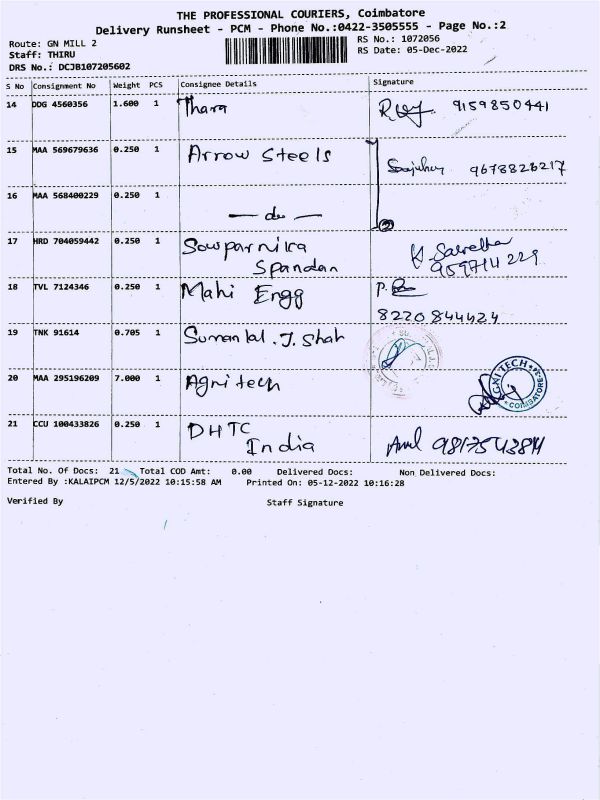 THE PROFESSIONAL COURIERS, Coimbatore
Delivery Runsheet - PCM - Phone No.:0422-3505555 - Page No.:2
Route: GN MILL 2
Staff: THIRU
DRS No.: DCJB107205602
RS No.: 1072056
RS Date: 05-Dec-2022
S No Consignment No Weight PCS Consignee Details Signature
14 DDG 4560356 1.600 1 Thara 9159850441
15 MAA 569679636 0.250 1 Arrow Steels 9678826217
16 MAA 568400229 0.250 1 — do — 2
17 HRD 704059442 0.250 1 Sowparnika
Spandan
18 TVL 7124346 0.250 1 Mahi Engg P.
8220844424
19 TNK 91614 0.705 1 Sumanlal. J. Shah
20 MAA 295196209 7.000 1 Agnitech AGNITECH COIMBATORE-34
21 CCU 100433826 0.250 1 DHTC
India
Total No. Of Docs: 21 Total COD Amt: 0.00 Delivered Docs: Non Delivered Docs:
Entered By :KALAIPCM 12/5/2022 10:15:58 AM Printed On: 05-12-2022 10:16:28
Verified By Staff Signature